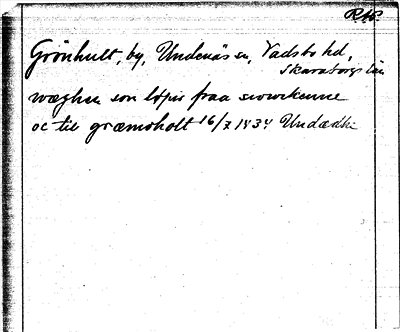 RAP.
Grönhult, by, Undenäs sn, Vadsbo hd,
Skaraborgs län
wæghen son løper fraa
oc til græmsholt 16/7 1434 Undædhi